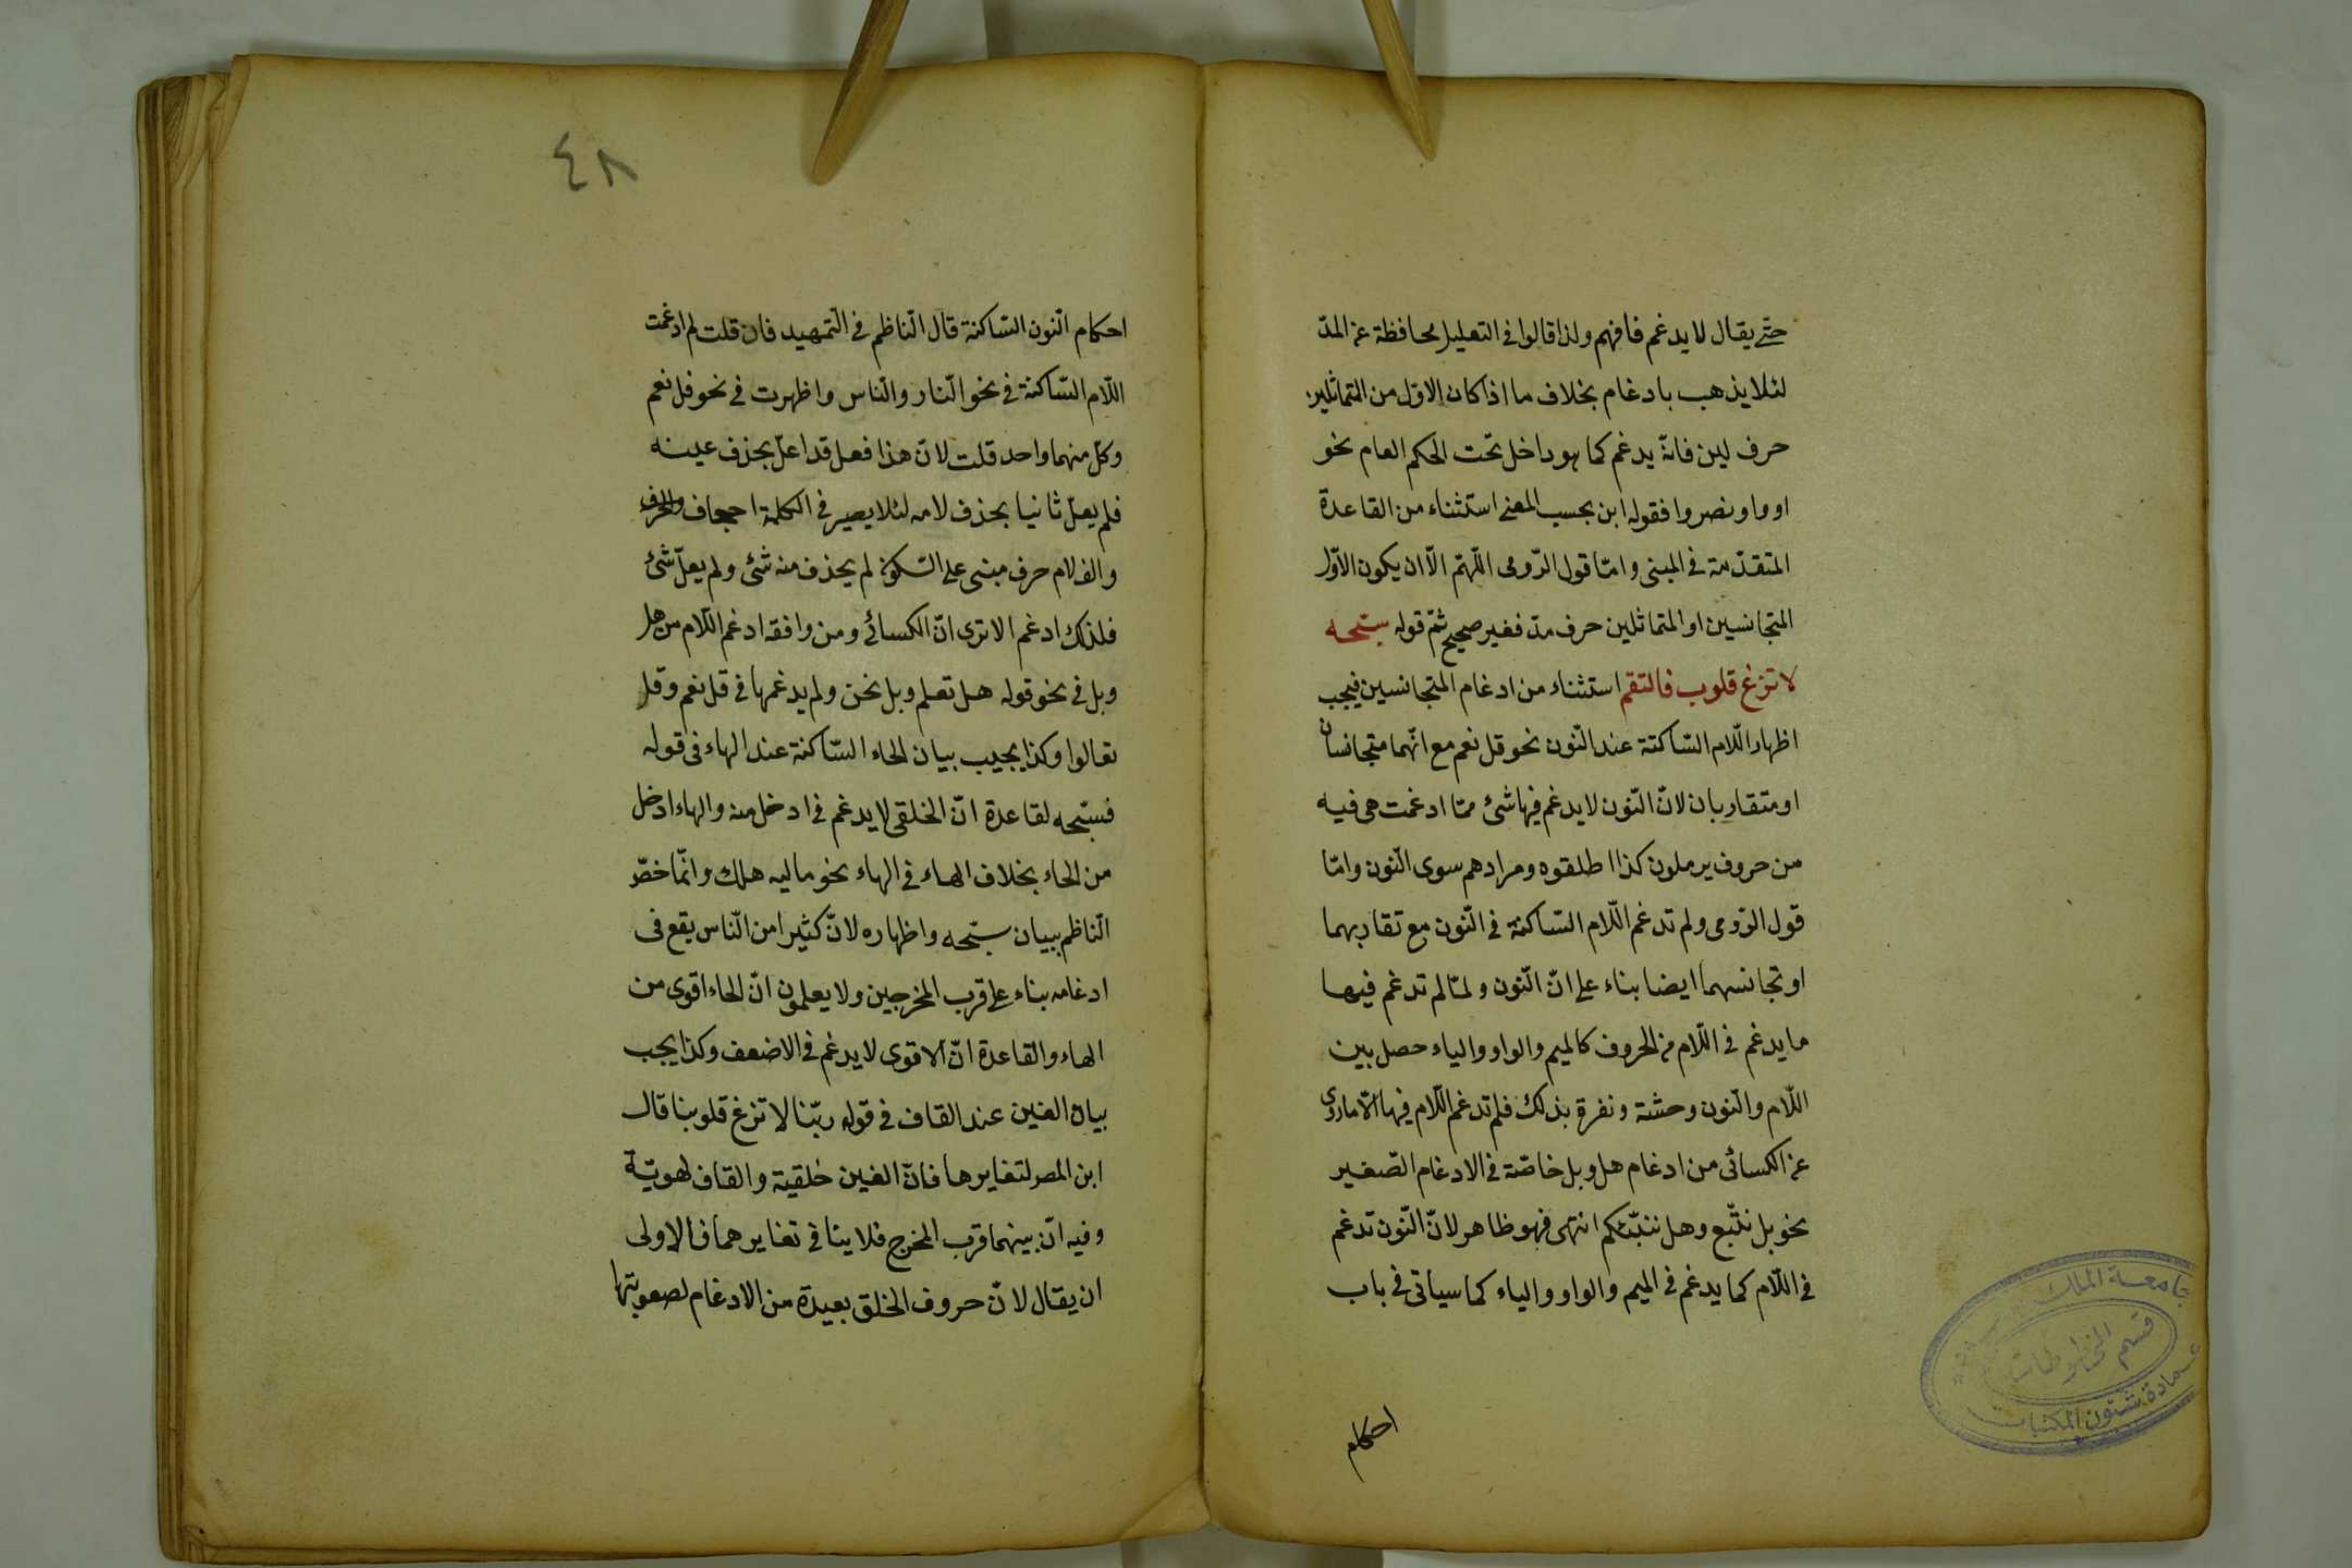 حتّى يقال لا يدغم فافهم ولذا قالوا فى التعليل محافظة عن المدّ
لئلا يذهب بادغام بخلاف ما اذا كان الاوّل من المتماثلين
حرف لين فانّه يدغم كما هو داخل تحت الحكم العام نحو
اووا ونصروا فقوله ابن بحسب المعنى استثناء من القاعدة
المتقدّمة فى المبنى وامّا قول الرّومى اللّهمّ الّا ان يكون الاوّل
المتجانسين او المتماثلين حرف مدّ فغير صحيح ثمّ قوله سبّحه
لا تزغ قلوب فالتقم استثناء من ادغام المتجانسين فيجب
اظهار اللّام السّاكنة عند النّون نحو قل نعم مع انّهما متجانسان
او متقاربان لانّ النّون لا يدغم فيها شئ ممّا ادغمت هى فيه
من حروف يرملون كذا اطلقوه ومرادهم سوى النّون وامّا
قول الرّومى ولم تدغم اللّام السّاكنة فى النّون مع تقاربهما
او تجانسهما ايضا بناء على انّ النّون ولمّا لم تدغم فيها
ما يدغم فى اللّام من الحروف كالميم والواو والياء حصل بين
اللّام والنّون وحشة ونفرة بذلك فلم تدغم اللّام فيها الّا ما روى
عن الكسائى من ادغام هل وبل خاصّة فى الادغام الصّغير
نحو بل نتّبع وهل ننبّئكم انتهى فهو ظاهر لانّ النّون تدغم
فى اللّام كما يدغم فى الميم والواو والياء كما سيأتى فى باب
احكام
جامعة الملك
قسم المخطوطات
عمادة شئون المكتبات
٤٨
احكام النّون السّاكنة قال النّاظم فى التّمهيد فان قلت لم ادغمت
اللّام السّاكنة فى نحو النّار والنّاس واظهرت فى نحو قل نعم
وكلّ منهما واحد قلت لانّ هذا فعل قد اعلّ بحذف عينه
فلم يعلّ ثانيا بحذف لامه لئلا يصير فى الكلمة احجاف والحرف
والف لام حرف مبنى على السّكون لم يحذف منه شئ ولم يعلّ شئ
فلذلك ادغم الا ترى انّ الكسائى ومن وافقه ادغم اللّام من هل
وبل فى نحو قوله هل تعلم وبل نحن ولم يدغمها فى قل نعم وقل
تعالوا وكذا يجيب بيان الحاء السّاكنة عند الهاء فى قوله
فسبّحه لقاعدة انّ الخلقى لا يدغم فى ادخل منه والهاء ادخل
من الحاء بخلاف الهاء فى الهاء نحو ماليه هلك وانّما خصّ
النّاظم ببيان سبّحه واظهاره لانّ كثيرا من النّاس يقع فى
ادغامه بناء على قرب المخرجين ولا يعلمون انّ الحاء اقوى من
الهاء والقاعدة انّ الاقوى لا يدغم فى الاضعف وكذا يجب
بيان الغين عند القاف فى قوله ربّنا لا تزغ قلوبنا قال
ابن المصر لتغايرها فانّ الغين خلقية والقاف لهويّة
وفيه انّ بينهما قرب المخرج فلا ينافى تغايرهما فالاولى
ان يقال لانّ حروف الخلق بعيدة من الادغام لصعوبتها